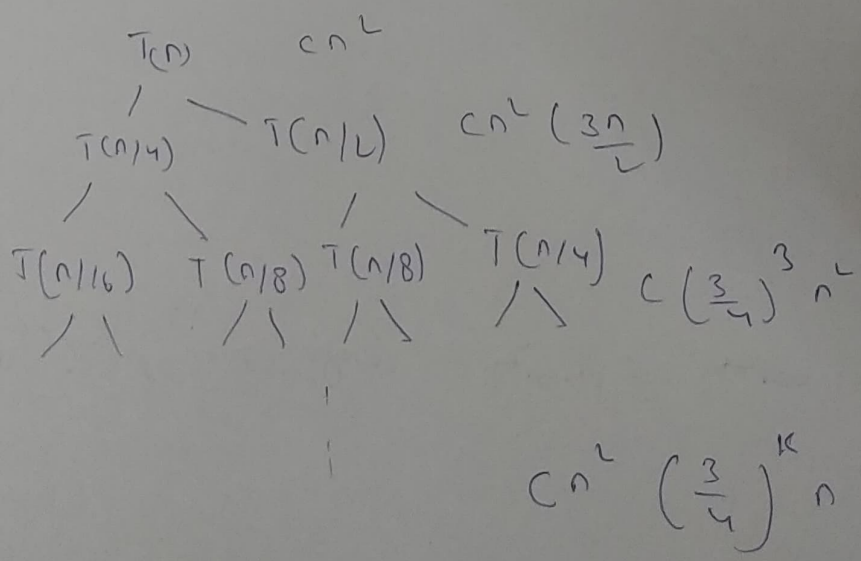 T(n) cn²
T(n/4) T(n/2) cn² (3n/2)
T(n/16) T(n/8) T(n/8) T(n/4) c (3/4)³ n²
cn² (3/4)ᴷ n